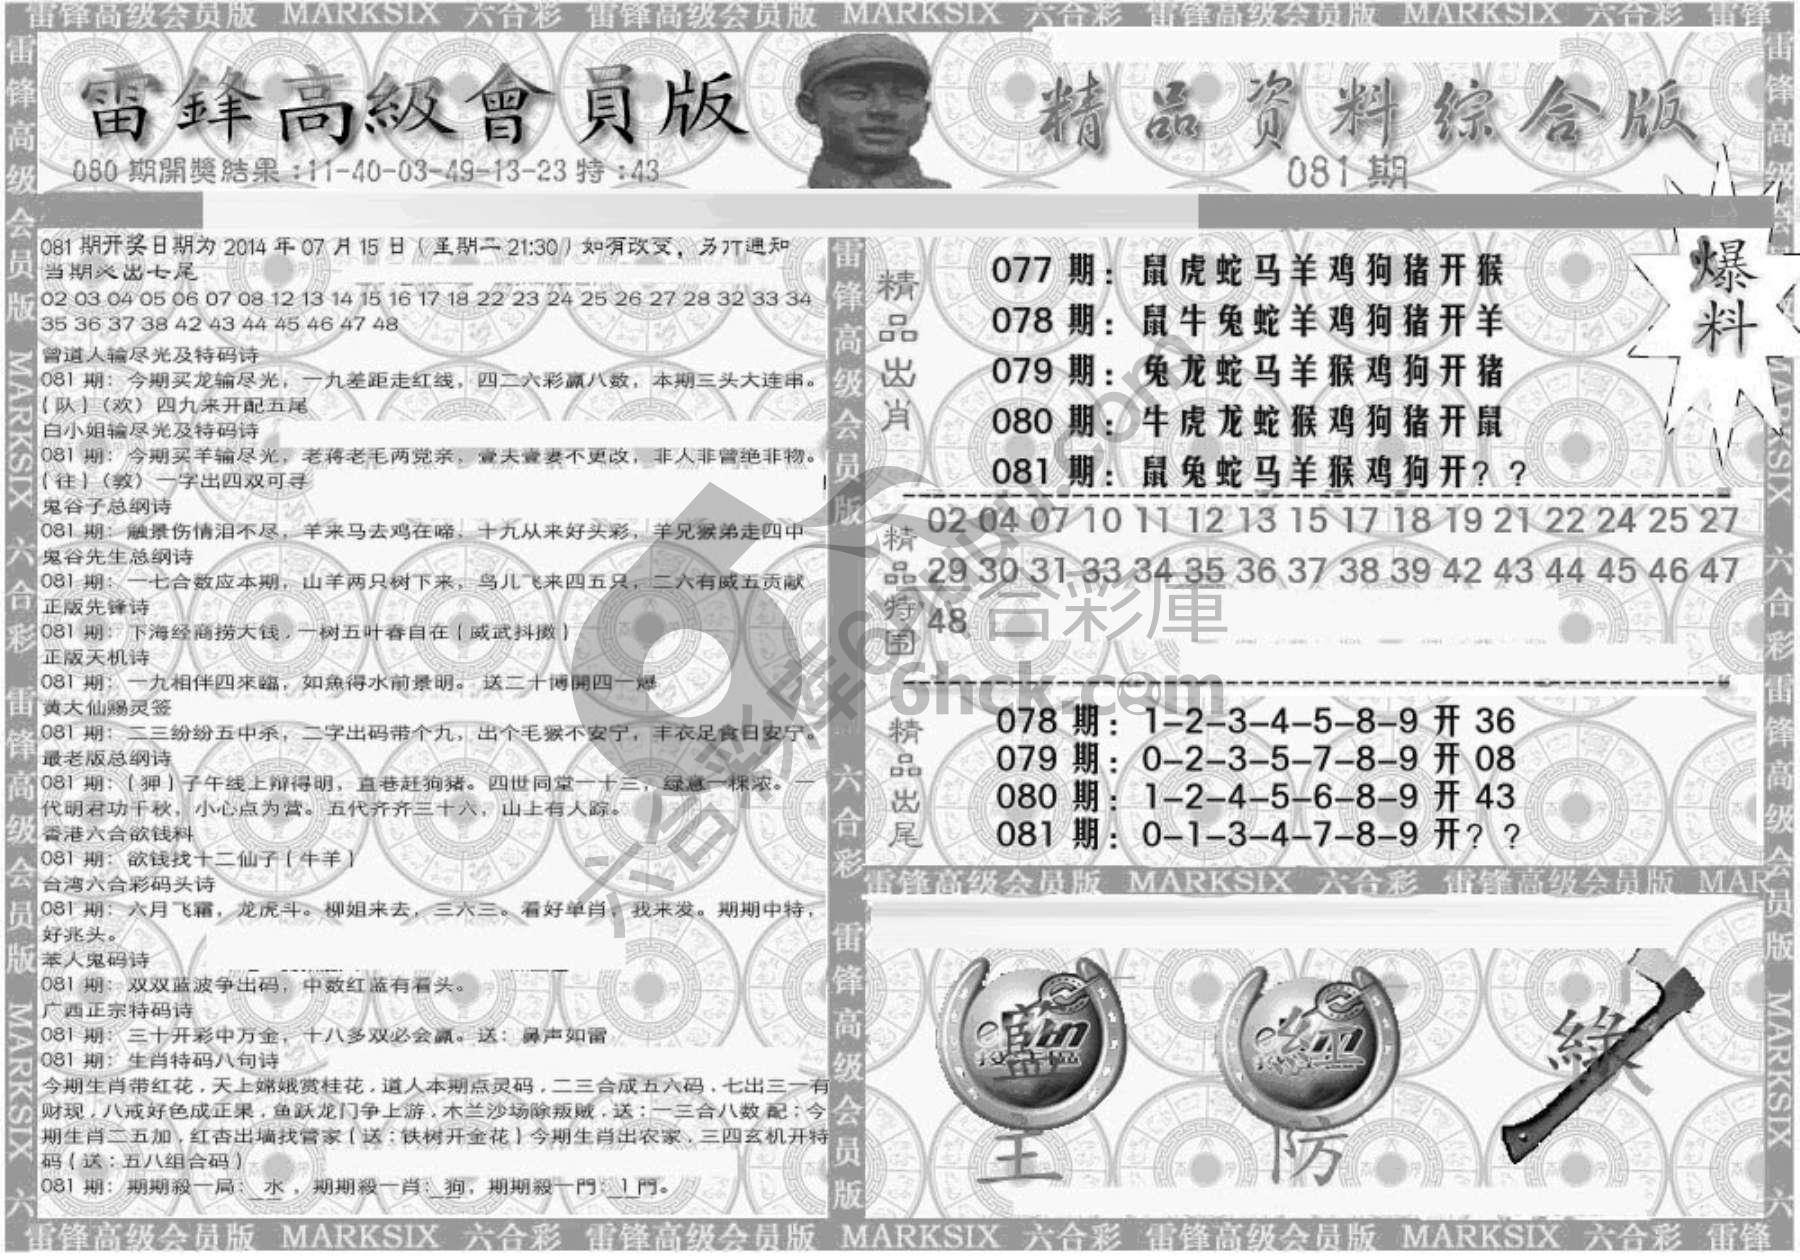 雷锋高级会员版 MARKSIX 六合彩 雷锋高级会员版 MARKSIX 六合彩 雷锋高级会员版 MARKSIX 六合彩 雷锋
雷鋒高級會員版
精品资料综合版
080 期開獎結果:11-40-03-49-13-23 特:43
081 期
爆料
081 期开奖日期为 2014 年 07 月 15 日(星期二 21:30)如有改变，另行通知
当期必出七尾
02 03 04 05 06 07 08 12 13 14 15 16 17 18 22 23 24 25 26 27 28 32 33 34
35 36 37 38 42 43 44 45 46 47 48
曾道人输尽光及特码诗
081 期：今期买龙输尽光，一九差距走红线，四二六彩赢八数，本期三头大连串。
(队)(欢)四九来开配五尾
白小姐输尽光及特码诗
081 期：今期买羊输尽光，老蒋老毛两党亲，壹夫壹妻不更改，非人非曾绝非物。
(往)(敦)一字出四双可寻
鬼谷子总纲诗
081 期：融景伤情泪不尽，羊来马去鸡在啼，十九从来好头彩，羊兄猴弟走四中
鬼谷先生总纲诗
081 期：一七合数应本期，山羊两只树下来，鸟儿飞来四五只，二六有威五贡献
正版先锋诗
081 期：下海经商捞大钱.一树五叶春自在(威武抖擞)
正版天机诗
081 期：一九相伴四來臨，如魚得水前景明。送二十博開四一爆
黄大仙赐灵签
081 期：二三纷纷五中杀，二字出码带个九，出个毛猴不安宁，丰衣足食日安宁。
最老版总纲诗
081 期：(狎)子午线上辩得明，直巷赶狗猪。四世同堂一十三，绿意一棵浓。一
代明君功千秋，小心点为营。五代齐齐三十六，山上有人踪。
香港六合欲钱料
081 期：欲钱找十二仙子(牛羊)
台湾六合彩码头诗
081 期：六月飞霜，龙虎斗。柳姐来去，三六三。看好单肖，我来发。期期中特，
好兆头。
苯人鬼码诗
081 期：双双蓝波争出码，中数红蓝有看头。
广西正宗特码诗
081 期：三十开彩中万金，十八多双必会赢。送：鼻声如雷
081 期：生肖特码八句诗
今期生肖带红花.天上嫦娥赏桂花.道人本期点灵码.二三合成五六码.七出三一有
财现.八戒好色成正果.鱼跃龙门争上游.木兰沙场除叛贼.送:一三合八数 配:今
期生肖二五加.红杏出墙找管家(送:铁树开金花)今期生肖出农家.三四玄机开特
码(送:五八组合码)
081 期：期期殺一局:水，期期殺一肖:狗，期期殺一門:1門。
精品出肖
077 期：鼠虎蛇马羊鸡狗猪开猴
078 期：鼠牛兔蛇羊鸡狗猪开羊
079 期：兔龙蛇马羊猴鸡狗开猪
080 期：牛虎龙蛇猴鸡狗猪开鼠
081 期：鼠兔蛇马羊猴鸡狗开？？
精品特围
02 04 07 10 11 12 13 15 17 18 19 21 22 24 25 27
29 30 31 33 34 35 36 37 38 39 42 43 44 45 46 47
48
精品出尾
078 期：1-2-3-4-5-8-9 开 36
079 期：0-2-3-5-7-8-9 开 08
080 期：1-2-4-5-6-8-9 开 43
081 期：0-1-3-4-7-8-9 开？？
雷锋高级会员版 MARKSIX 六合彩 雷锋高级会员版 MAR
藍
紅
綠
主
防
六合彩库
六合彩庫
6hck.com
雷锋高级会员版 MARKSIX 六合彩 雷锋高级会员版 MARKSIX 六合彩 雷锋高级会员版 MARKSIX 六合彩 雷锋